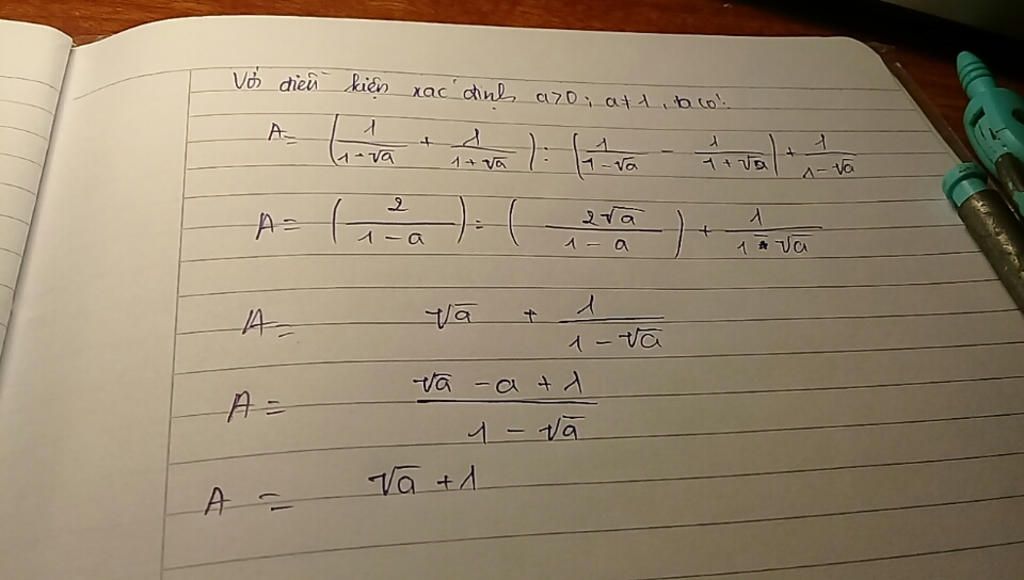 Với điều kiện xác định a>0; a≠1, ta có:
A= (1/(1-√a) + 1/(1+√a)) : (1/(1-√a) - 1/(1+√a)) + 1/(1-√a)
A= (2/(1-a)) : (2√a/(1-a)) + 1/(1-√a)
A= √a + 1/(1-√a)
A= (√a -a +1)/(1-√a)
A = √a +1